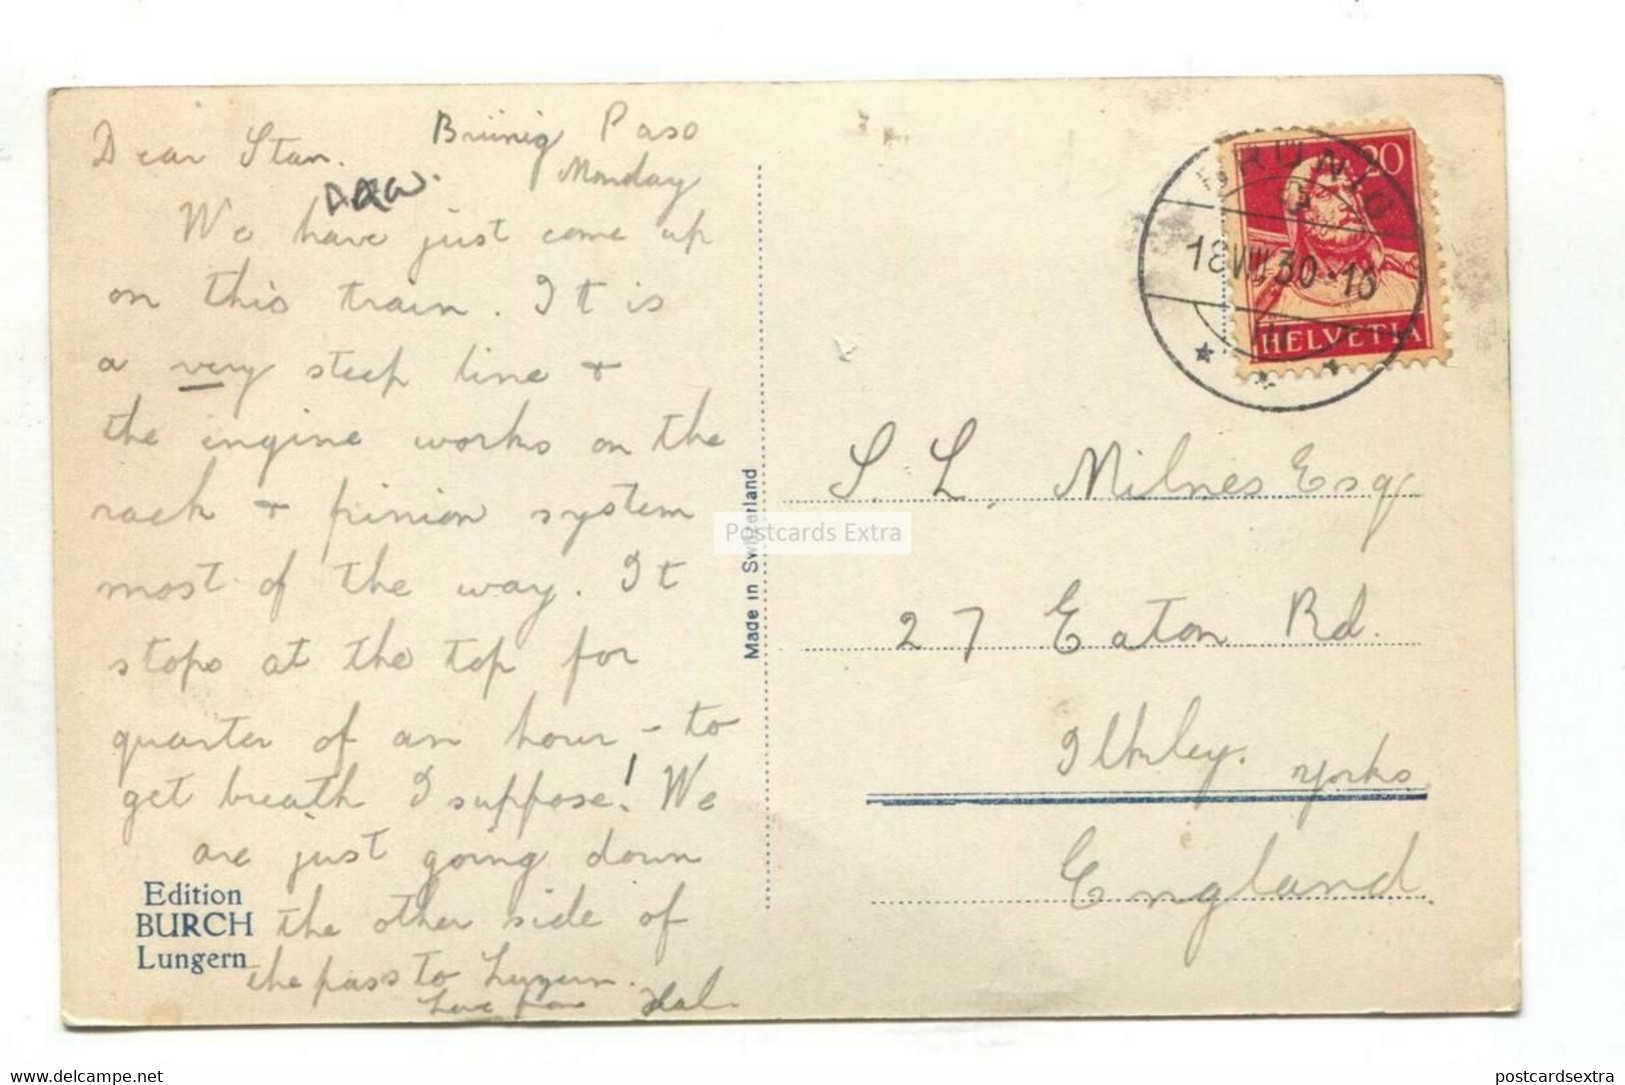 Brünig Pass
Dear Stan. Monday
We have just come up
on this train. It is
a very steep line +
the engine works on the
rack + pinion system
most of the way. It
stops at the top for
quarter of an hour - to
get breath I suppose! We
are just going down
the other side of
the pass to Luzern.
Love from Hal
Edition
BURCH
Lungern
Made in Switzerland
Postcards Extra
BRÜNIG
18.VIII.30.16
20
HELVETIA
S. L. Milnes Esq
27 Eaton Rd.
Ilkley. Yorks
England.
delcampe.net
postcardsextra